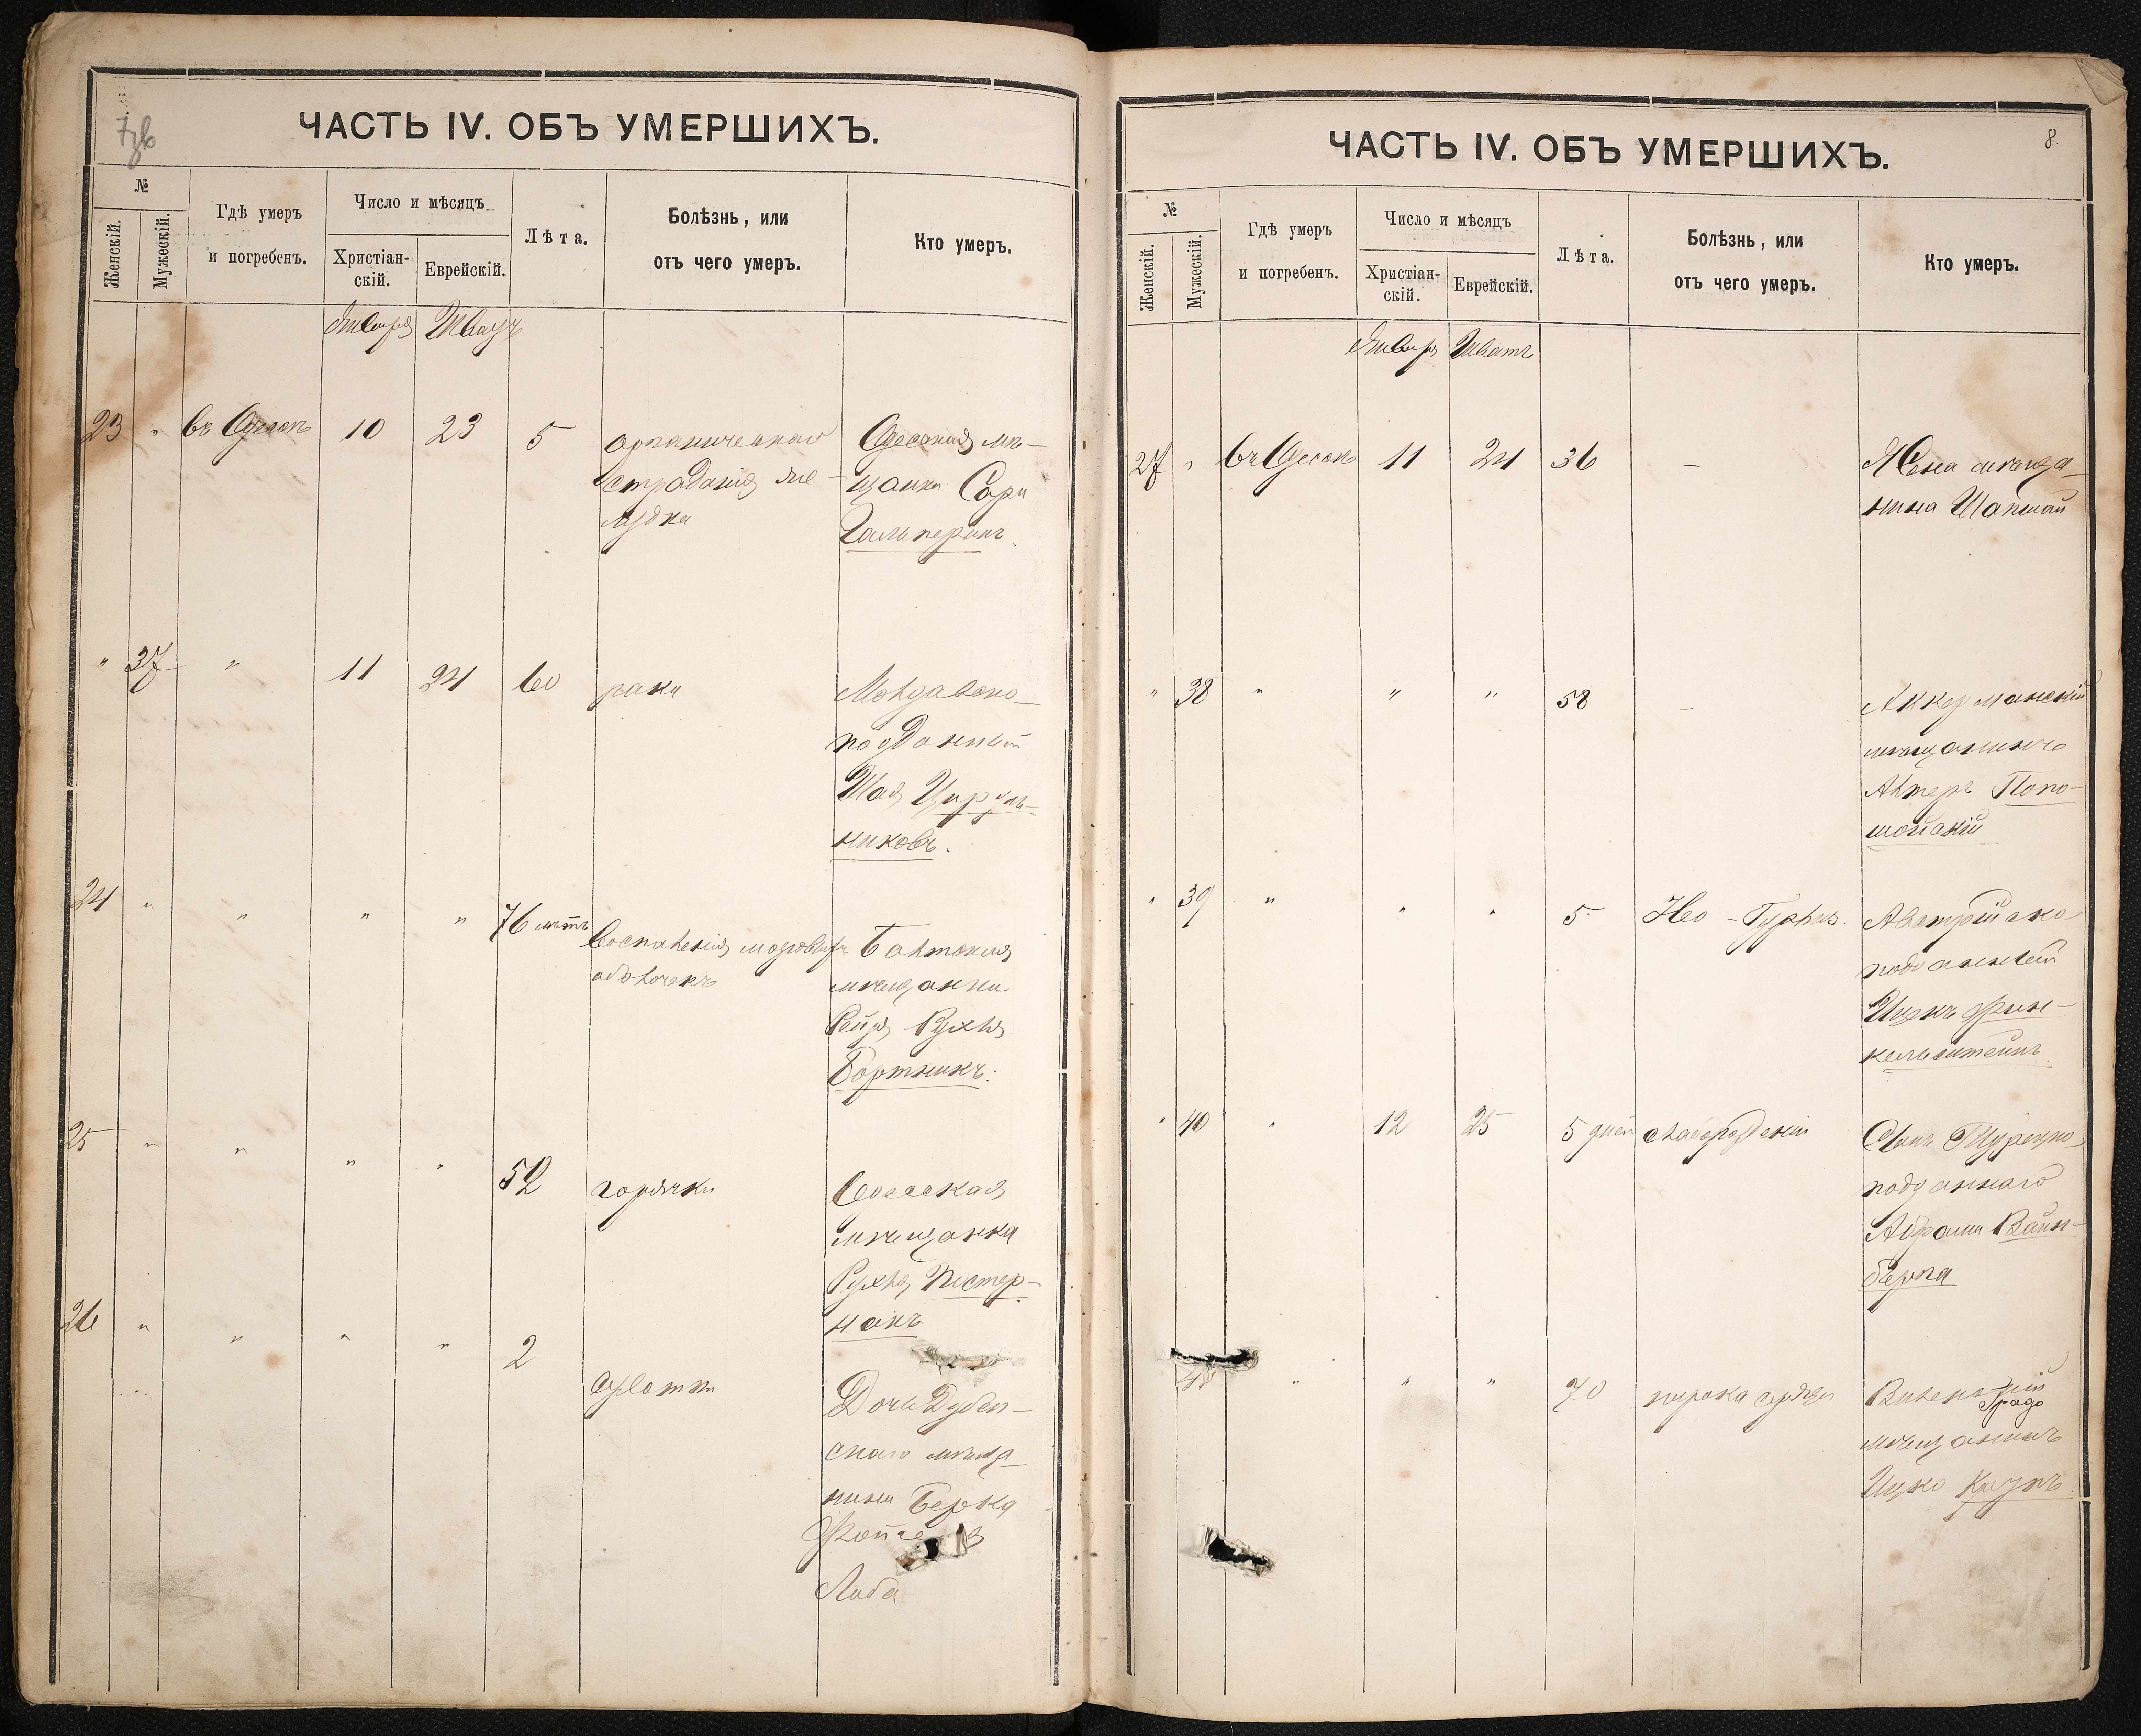 7зв
ЧАСТЬ IV. ОБЪ УМЕРШИХЪ.
№
Женскій.
Мужескій.
Гдѣ умеръ
и погребенъ.
Число и мѣсяцъ
Христіан-
скій.
Еврейскій.
Лѣта.
Болѣзнь, или
отъ чего умеръ.
Кто умеръ.
Января Шватъ
23 " въ Одессѣ 10 23 5 органическаго Одесская мѣ-
страданія же- щанка Сара
лудка Гальперинъ.
" 37 " 11 24 60 рака Молдавско-
подданный
Шая Цируль-
никовъ.
24 " " " " 76 лѣтъ воспаленія мозговыхъ Балтская
оболочекъ мѣщанка
Рейзя Рухля
Бортникъ.
25 " " " " 52 горячки Одесская
мѣщанка
Рухля Пастер-
накъ
26 " " " " 2 сухотки Дочь Дубен-
скаго мѣща-
нина Берка
Либа
8.
ЧАСТЬ IV. ОБЪ УМЕРШИХЪ.
№
Женскій.
Мужескій.
Гдѣ умеръ
и погребенъ.
Число и мѣсяцъ
Христіан-
скій.
Еврейскій.
Лѣта.
Болѣзнь, или
отъ чего умеръ.
Кто умеръ.
Января Шватъ
27 " въ Одессѣ 11 24 36 — Жена мѣща-
нина Шапшай
" 38 " " " 58 — Аккерманскій
мѣщанинъ
Алтеръ
" 39 " " " 5 Австрійско
подданный
Ицекъ Фин-
кельштейнъ.
" 40 " 12 25 5 дней слаборожденія Сынъ Турецко
подданнаго
Абрама Вайн-
берга
41 " " " 70 порока сердца
мѣщанинъ
Ицко